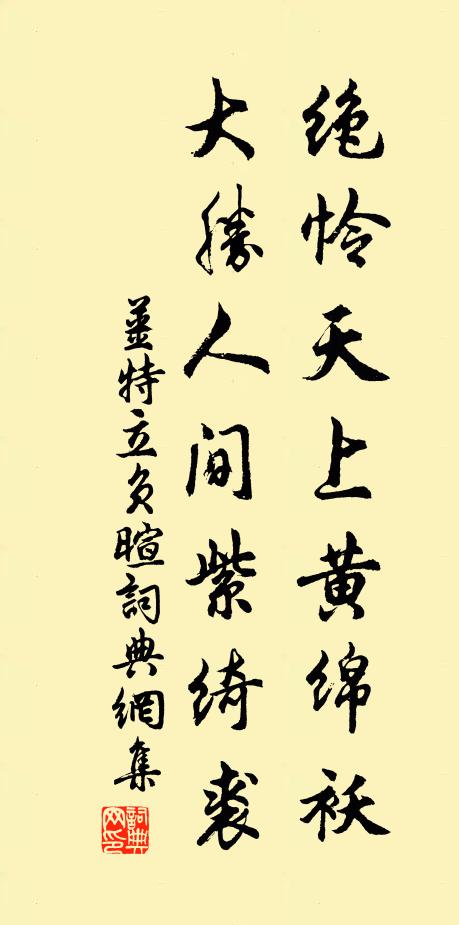 绝怜天上黄绵袄
大胜人间紫绮裘
姜特立负暄詞典網集
詞典网印